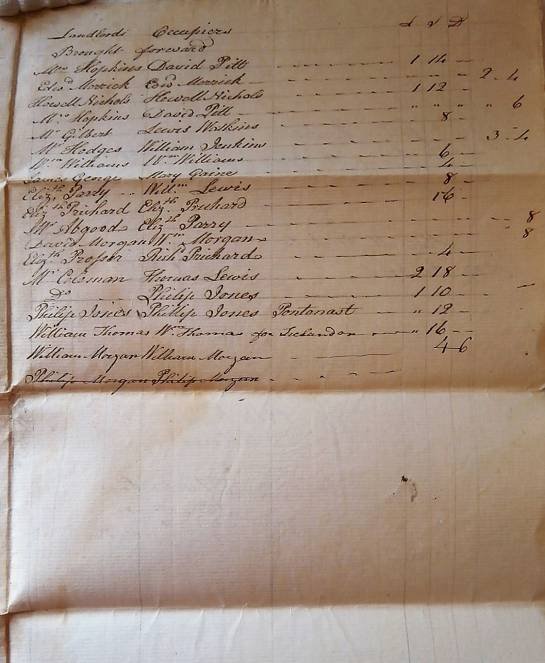 Landlords Occupiers £ S D
Brought forward
Mrs Hopkins David Pitt 1 14 —
Edwd Morrick Edwd Morrick 2 . 4
Howell Nichols Howell Nichols 1 12 —
Mrs Hopkins David Pitt " " " " 6
Mr Gilbert Lewis Watkins 8
Mr Hedges William Jenkins 3 . 4
Wm Williams Wm Williams 6
James George Mary Gaine 4
Elizth Parry Willm Lewis 8
Elizth Prichard Elizth Prichard 16
Mr Abgood Elizth Parry 8
David Morgan Wm Morgan 8
Elizth Prosser Richd Prichard 4
Mr Coleman Thomas Lewis 2 18 —
Do Philip Jones 1 10 —
Philip Jones Phillip Jones Pontonast " 12 —
William Thomas Wm Thomas for " 16 —
William Morgan William Morgan 4 6
Philip Morgan Philip Morgan